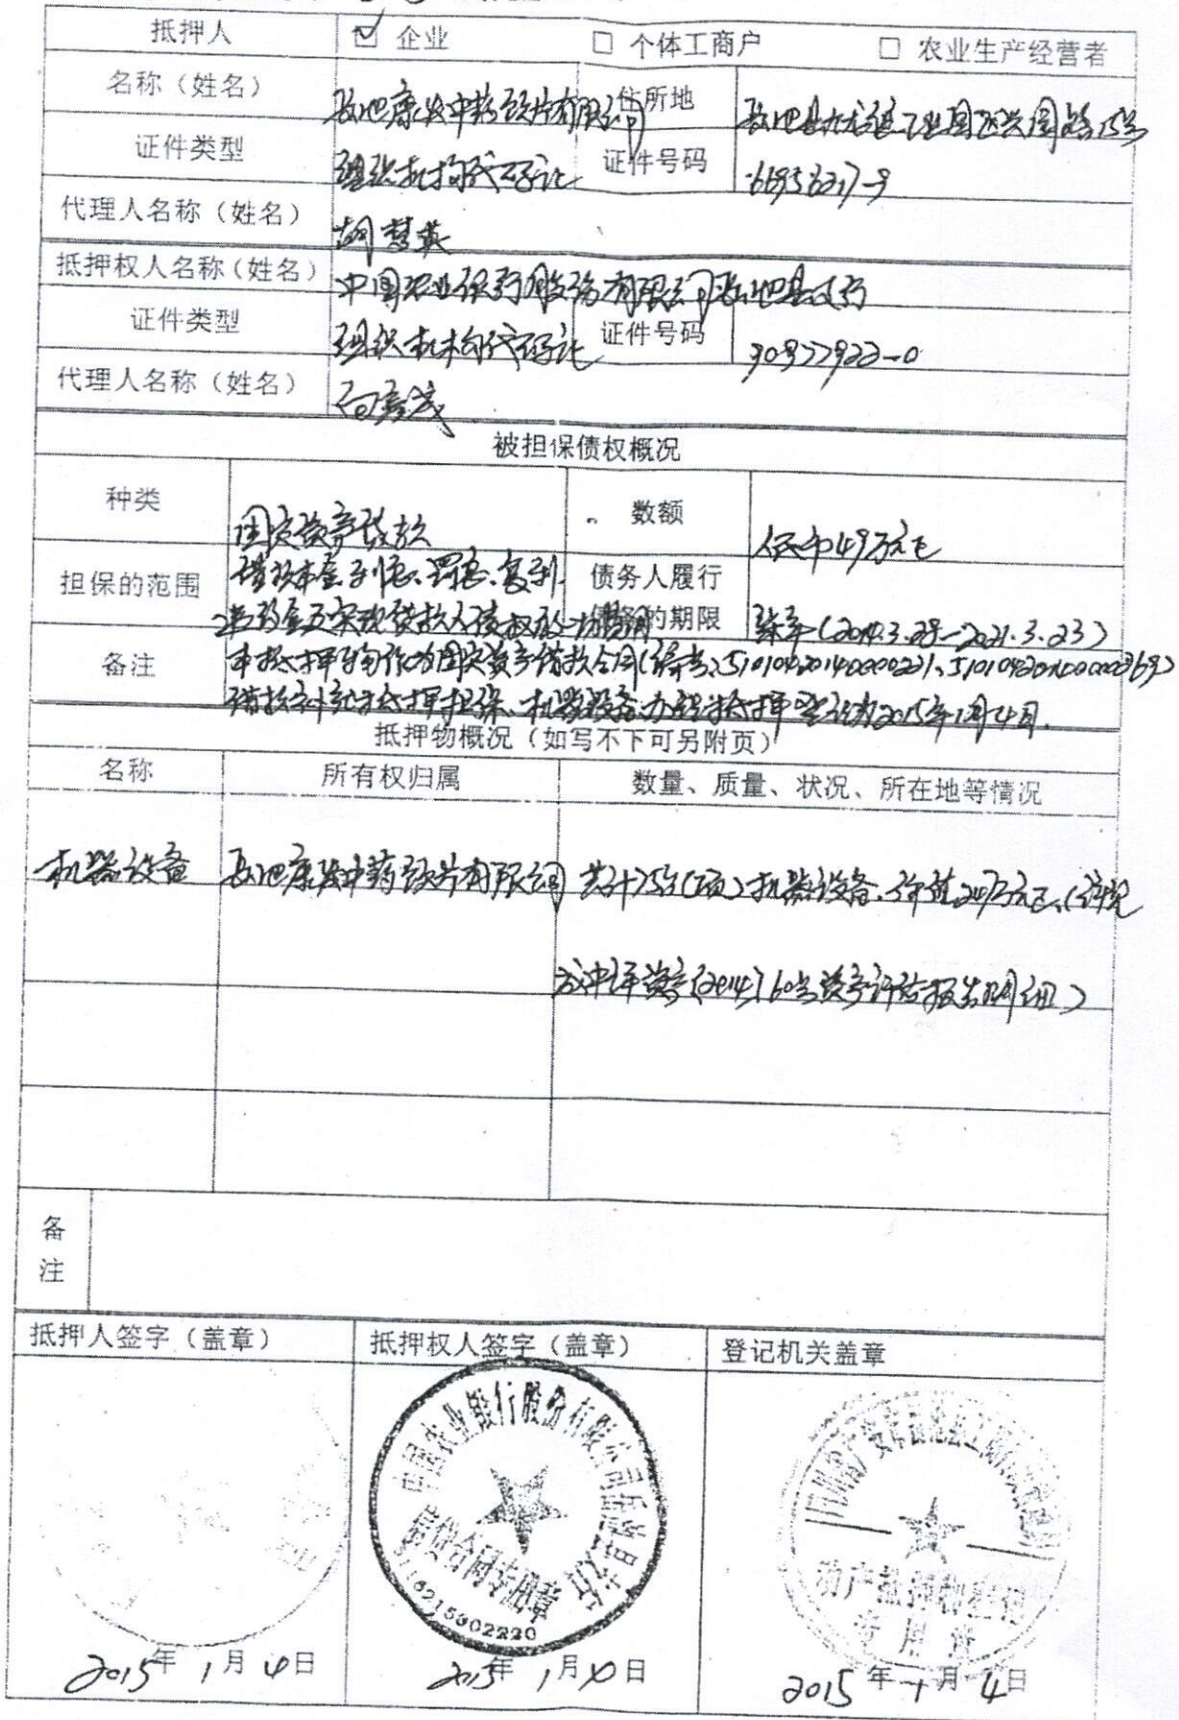 抵押人 ☑ 企业 □ 个体工商户 □ 农业生产经营者
名称（姓名） 岳池康 中药饮片有限公司 住所地 岳池县九龙镇工业园区兴园路15号
证件类型 组织机构代码证 证件号码 66956237-9
代理人名称（姓名） 胡慧英
抵押权人名称（姓名） 中国农业银行股份有限公司岳池县支行
证件类型 组织机构代码证 证件号码 90977922-0
代理人名称（姓名）
被担保债权概况
种类 固定资产贷款 数额 人民币49万元
担保的范围 借款本金、利息、罚息、复利、 债务人履行
违约金及实现贷款人债权的一切费用 债务的期限 (2014.3.28—2021.3.23)
备注 本抵押物作为固定资产借款合同(编号:51010420140000221、
借款 抵押担保、机器设备办理抵押登记为2015年1月4日.
抵押物概况（如写不下可另附页）
名称 所有权归属 数量、质量、状况、所在地等情况
机器设备 岳池康 中药饮片有限公司 共计75台(项)机器设备、 万元正、(详见
评资字(2014)60号资产评估报告明细)
备
注
抵押人签字（盖章） 抵押权人签字（盖章） 登记机关盖章
中国农业银行股份有限公司岳池县支行
信贷合同专用章
5116215002220
四川省广安市岳池县工商行政管理局
动产抵押物登记
专用章
2015年1月4日 2015年1月4日 2015年1月4日